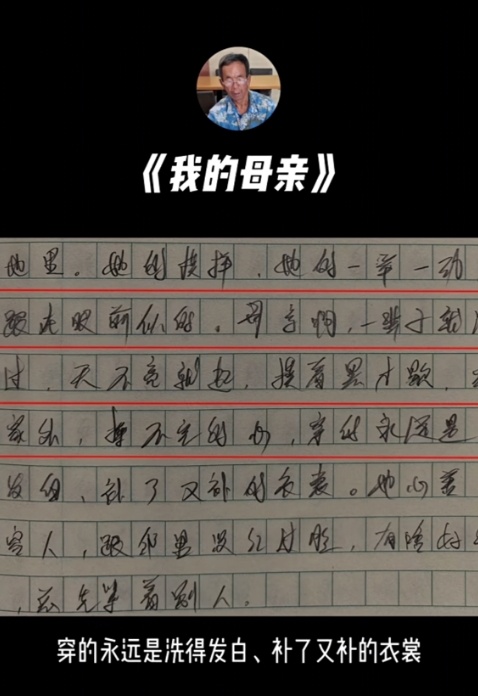 《我的母亲》
地里。她的模样,她的一举一动
跟在眼前似的。母亲啊,一辈子就没
过,天不亮就起,摸着黑才歇,
家务,操不完的心,穿的永远是
发白,补了又补的衣裳。她心善
容人,跟邻里没红过脸,有啥好
,总先紧着别人。
穿的永远是洗得发白、补了又补的衣裳